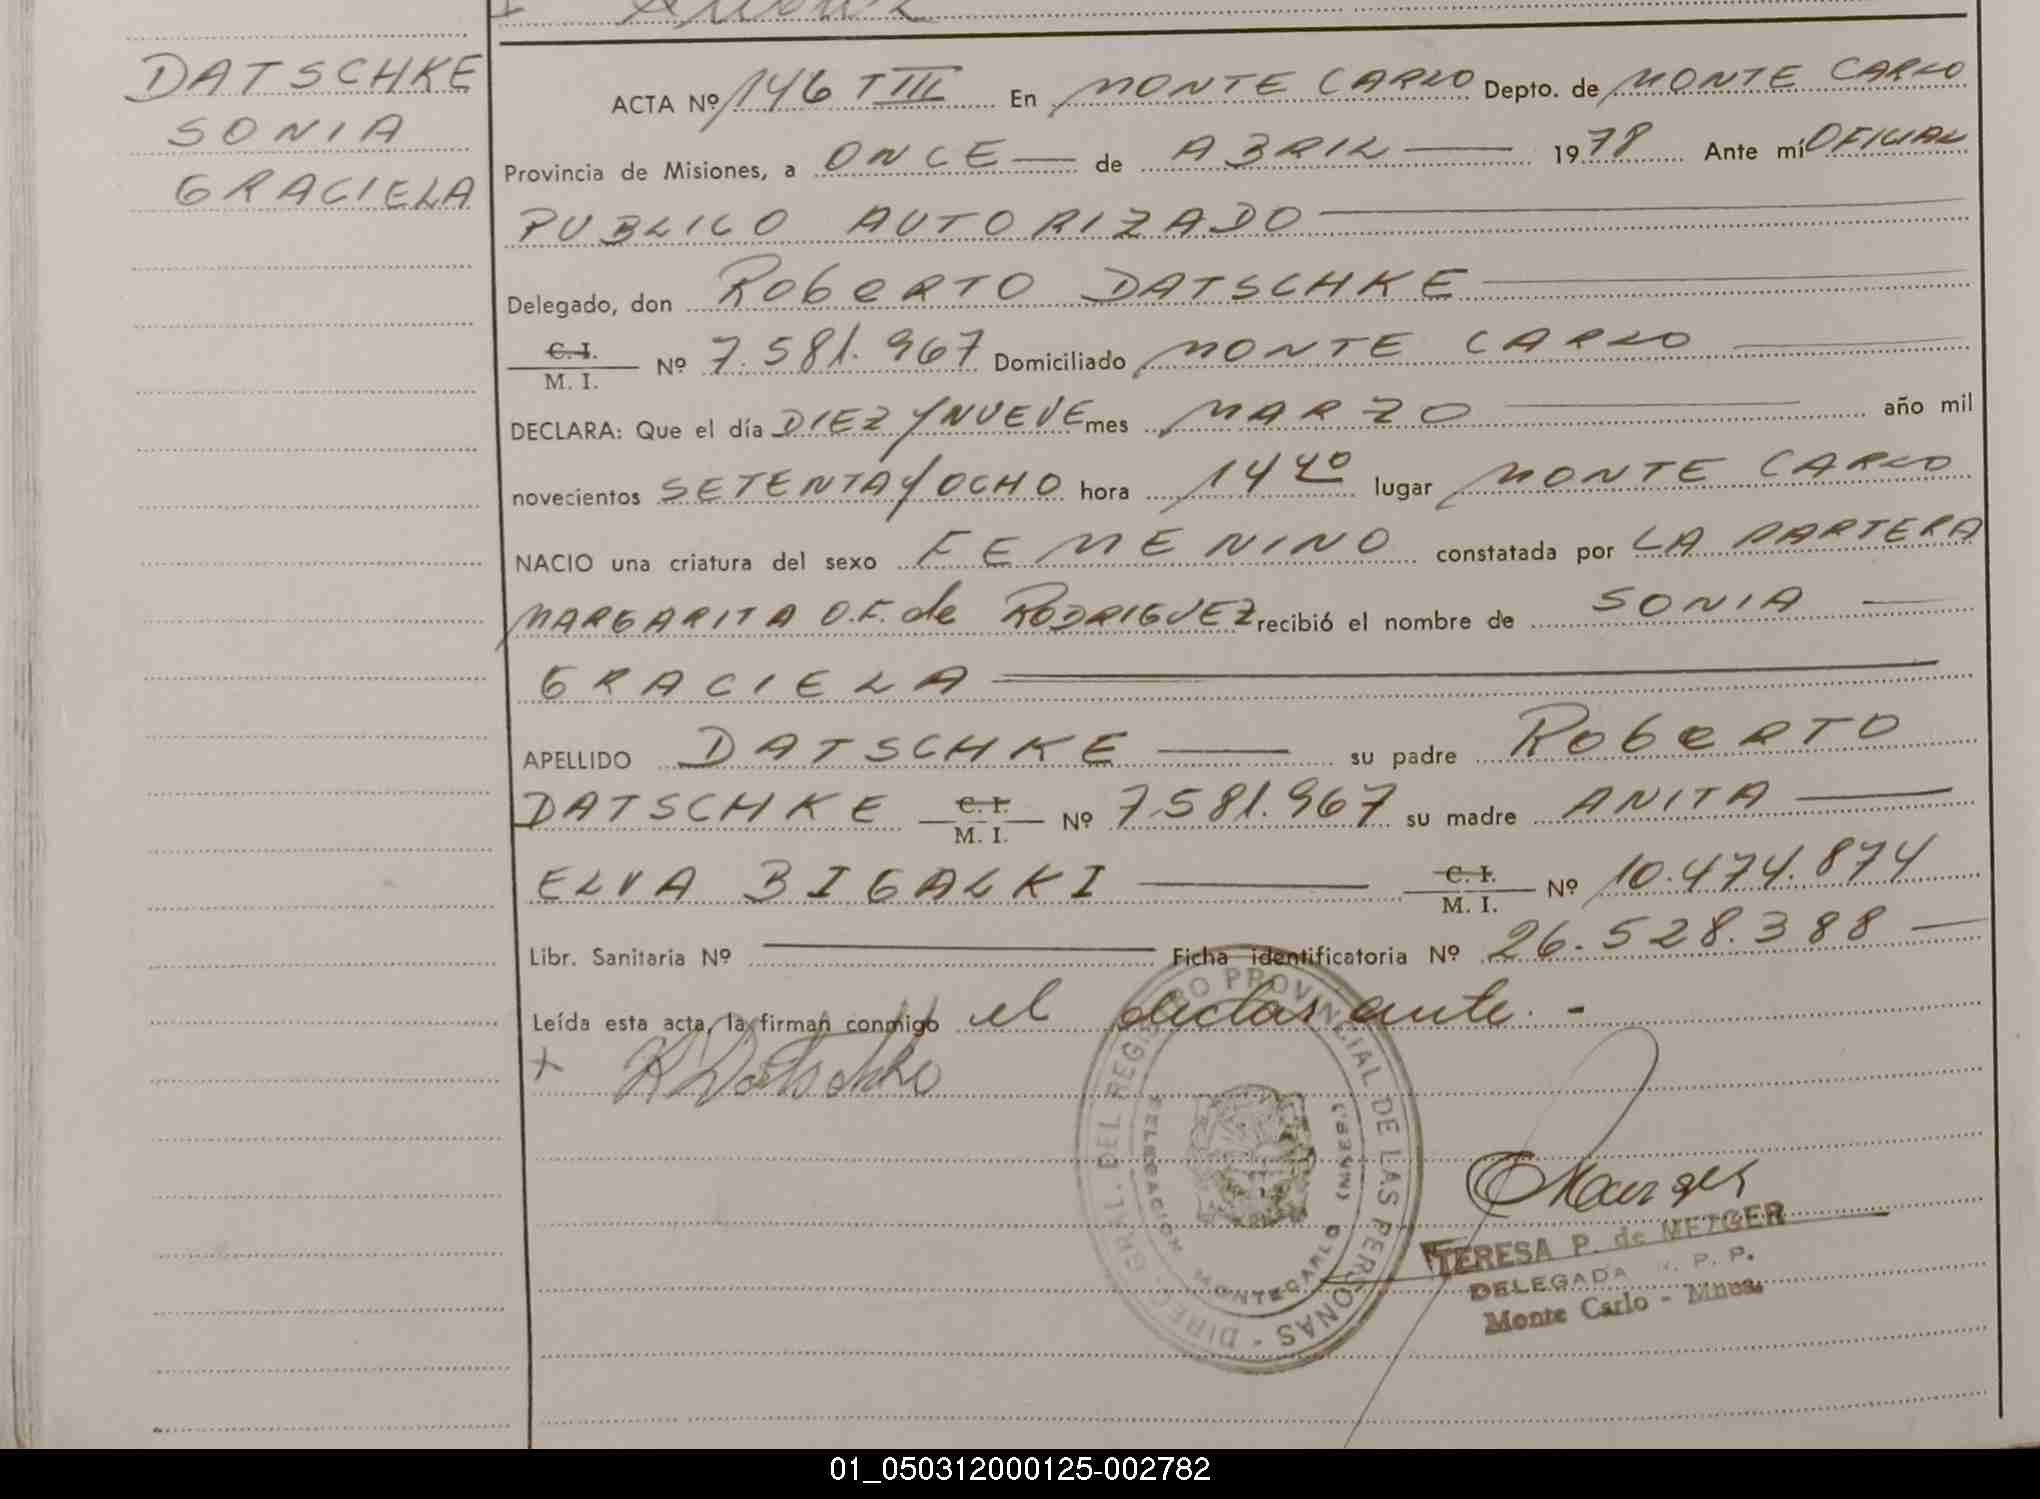 DATSCHKE
SONIA
GRACIELA
ACTA Nº 146 T III En MONTE CARLO Depto. de MONTE CARLO
Provincia de Misiones, a ONCE de ABRIL 1978 Ante mí OFICIAL
PUBLICO AUTORIZADO
Delegado, don Roberto DATSCHKE
C. I.
M. I. Nº 7.581.967 Domiciliado MONTE CARLO
DECLARA: Que el día DIEZ Y NUEVE mes MARZO año mil
novecientos SETENTA Y OCHO hora 14 40 lugar MONTE CARLO
NACIO una criatura del sexo FEMENINO constatada por LA PARTERA
MARGARITA O.F. de RODRIGUEZ recibió el nombre de SONIA
GRACIELA
APELLIDO DATSCHKE su padre Roberto
DATSCHKE C. I. M. I. Nº 7.581.967 su madre ANITA
ELVA BIGALKI C. I. M. I. Nº 10.474.874
Libr. Sanitaria Nº Ficha identificatoria Nº 26.528.388
Leída esta acta, la firman conmigo el declarante. -
+ R Datschke
DIREC. GRAL. DEL REGISTRO PROVINCIAL DE LAS PERSONAS -
DELEGACION MONTECARLO (MNES.)
TERESA P. de METZGER
DELEGADA P. P.
Monte Carlo - Mnes.
01_050312000125-002782